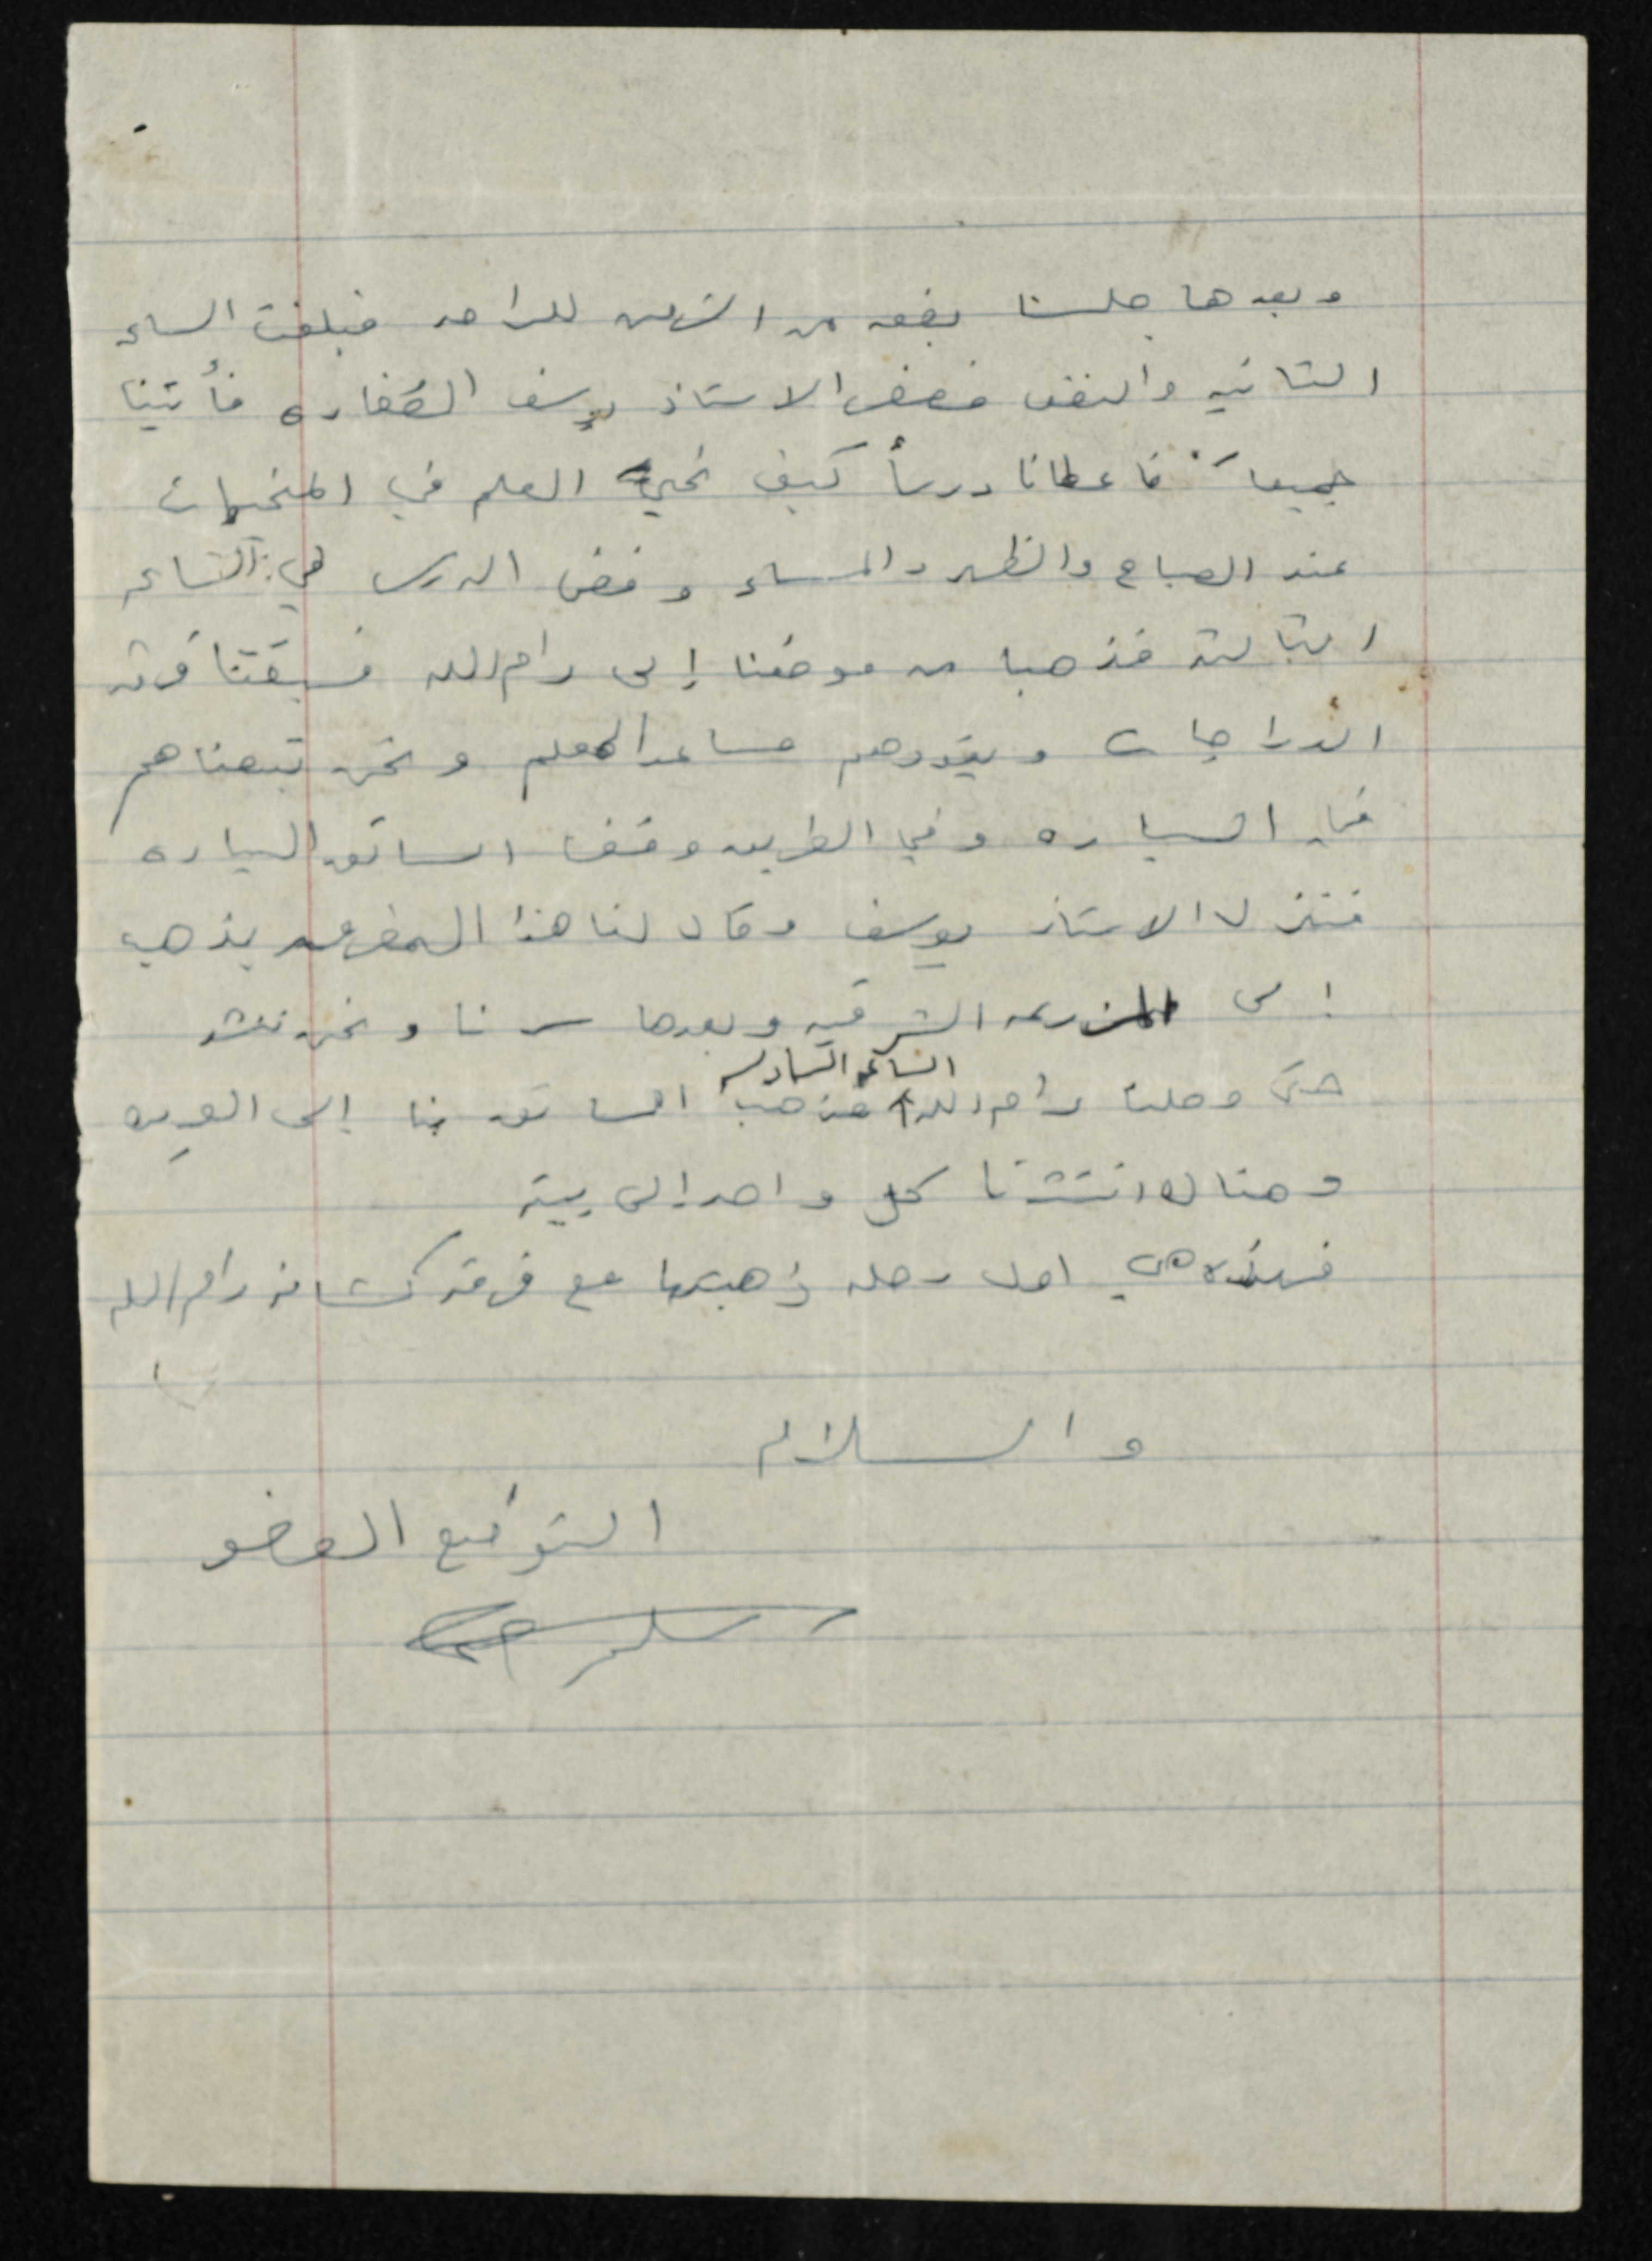 وبعدها جلسنا بضعه من الزمن للراحه فبلغت الساعه
الثانيه والنصف فصفر الاستاذ يوسف الصفاره فأتينا
جميعاً فاعطانا درساً كيف نحيي العلم في المخيمات
عند الصباح والظهر والمساء وفض الدرس في الساعه
الثالثة فذهبنا من موضعنا إلى رام الله فسبقتنا فرقه
الدراجات ويقودهم مساعد المعلم ونحن تبعناهم
في السياره وفي الطريق وقف السائق السياره
فنزل الاستاذ يوسف وقال لنا هذا المفرق يذهب
إلى المزرعه الشرقيه وبعدها سرنا ونحن ننشد
حتى وصلنا رام الله الساعه السادسه فذهب السائق بنا إلى
وهناك انتشرنا كل واحد الى بيته
فهذه هي اول رحله ذهبتها مع فرقة كشافة رام الله
والسلام
التوقيع العضو